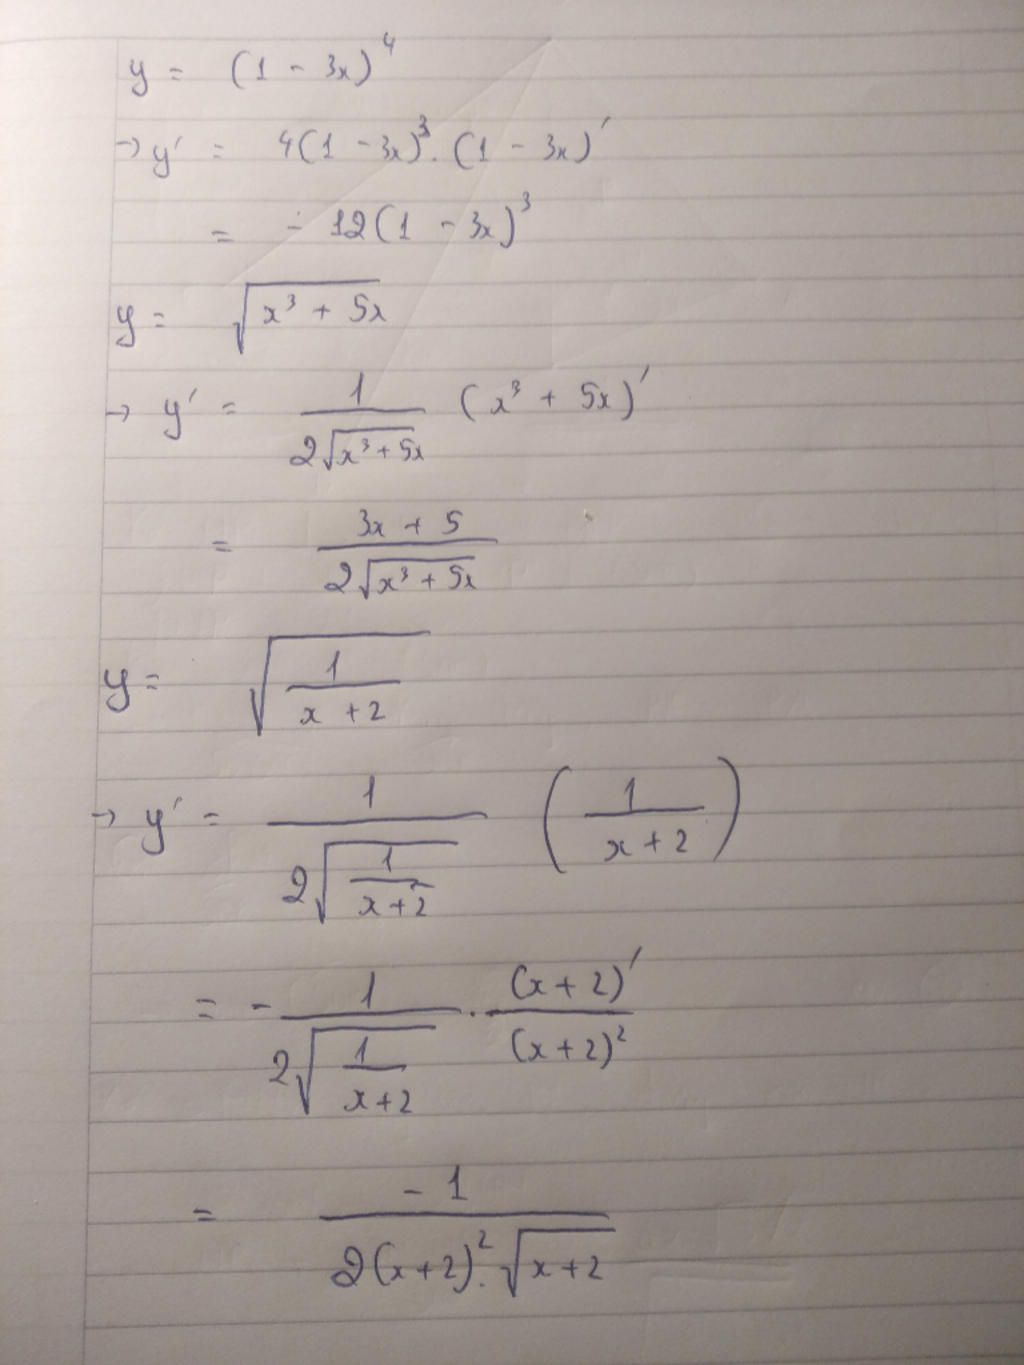 y = (1 - 3x)⁴
→ y' = 4(1 - 3x)³ . (1 - 3x)'
= - 12(1 - 3x)³
y = √(x³ + 5x)
→ y' = 1/(2√(x³ + 5x)) (x³ + 5x)'
= (3x + 5)/(2√(x³ + 5x))
y = √(1/(x + 2))
→ y' = 1/(2√(1/(x + 2))) (1/(x + 2))
= - 1/(2√(1/(x + 2))) . (x + 2)'/(x + 2)²
= -1/(2(x + 2)² . √(x + 2))